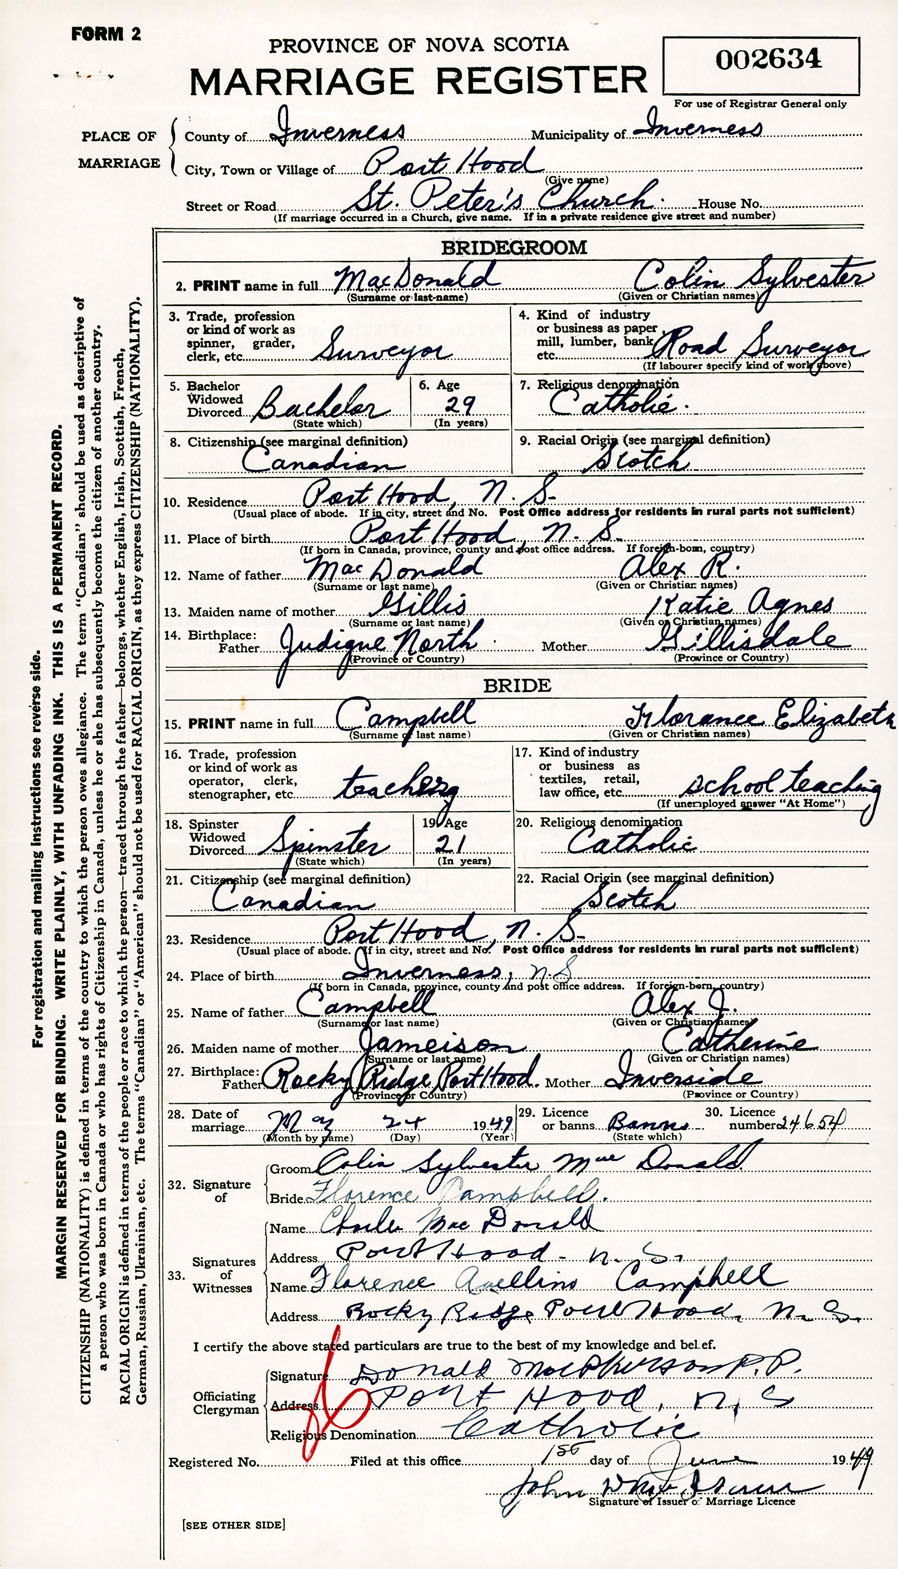 FORM 2
PROVINCE OF NOVA SCOTIA
MARRIAGE REGISTER
002634
For use of Registrar General only
PLACE OF MARRIAGE
County of Inverness Municipality of Inverness
City, Town or Village of Port Hood
(Give name)
Street or Road St. Peter's Church. House No.
(If marriage occurred in a Church, give name. If in a private residence give street and number)
BRIDEGROOM
2. PRINT name in full MacDonald Colin Sylvester
(Surname or last-name) (Given or Christian names)
3. Trade, profession or kind of work as spinner, grader, clerk, etc. Surveyor
4. Kind of industry or business as paper mill, lumber, bank etc. Road Surveyor
(If labourer specify kind of work above)
5. Bachelor Widowed Divorced Bachelor
(State which)
6. Age 29
(In years)
7. Religious denomination Catholic.
8. Citizenship (see marginal definition) Canadian
9. Racial Origin (see marginal definition) Scotch
10. Residence Port Hood, N. S.
(Usual place of abode. If in city, street and No. Post Office address for residents in rural parts not sufficient)
11. Place of birth Port Hood, N. S.
(If born in Canada, province, county and post office address. If foreign-born, country)
12. Name of father MacDonald Alex R.
(Surname or last name) (Given or Christian names)
13. Maiden name of mother Gillis Katie Agnes
(Surname or last name) (Given or Christian names)
14. Birthplace: Father Judique North Mother Gillisdale
(Province or Country) (Province or Country)
BRIDE
15. PRINT name in full Campbell Florance Elizabeth
(Surname or last name) (Given or Christian names)
16. Trade, profession or kind of work as operator, clerk, stenographer, etc.
17. Kind of industry or business as textiles, retail, law office, etc. school teaching
(If unemployed answer "At Home")
18. Spinster Widowed Divorced Spinster
(State which)
19. Age 21
(In years)
20. Religious denomination Catholic
21. Citizenship (see marginal definition) Canadian
22. Racial Origin (see marginal definition) Scotch
23. Residence Port Hood, N. S.
(Usual place of abode. If in city, street and No. Post Office address for residents in rural parts not sufficient)
24. Place of birth Inverness, N.S
(If born in Canada, province, county and post office address. If foreign-born, country)
25. Name of father Campbell Alex J.
(Surname or last name) (Given or Christian names)
26. Maiden name of mother Jameison Catherine
(Surname or last name) (Given or Christian names)
27. Birthplace: Father Rocky Ridge Port Hood. Mother Inverside
(Province or Country) (Province or Country)
28. Date of marriage May 24 1949
(Month by name) (Day) (Year)
29. Licence or banns Banns
(State which)
30. Licence number 24654
32. Signature of
Groom Colin Sylvester MacDonald
Bride Florence Campbell.
33. Signatures of Witnesses
Name Charles MacDonald
Address Port Hood - N. S.
Name Florence Campbell
Address Rocky Ridge Port Hood, N. S.
I certify the above stated particulars are true to the best of my knowledge and belief.
Officiating Clergyman
Signature Donald MacPherson P.P.
Address Port Hood, N,S
Religious Denomination Catholic
Registered No. Filed at this office 1st day of June 1949
John
Signature of Issuer of Marriage Licence
[SEE OTHER SIDE]
For registration and mailing instructions see reverse side.
MARGIN RESERVED FOR BINDING. WRITE PLAINLY, WITH UNFADING INK. THIS IS A PERMANENT RECORD.
CITIZENSHIP (NATIONALITY) is defined in terms of the country to which the person owes allegiance. The term "Canadian" should be used as descriptive of
a person who was born in Canada or who has rights of Citizenship in Canada, unless he or she has subsequently become the citizen of another country.
RACIAL ORIGIN is defined in terms of the people or race to which the person—traced through the father—belongs, whether English, Irish, Scottish, French,
German, Russian, Ukrainian, etc. The terms "Canadian" or "American" should not be used for RACIAL ORIGIN, as they express CITIZENSHIP (NATIONALITY).